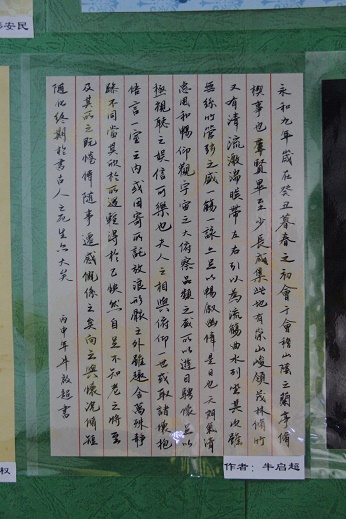 安民
永和九年歲在癸丑暮春之初會于會稽山陰之蘭亭脩
禊事也羣賢畢至少長咸集此地有崇山峻領茂林脩竹
又有清流激湍暎帶左右引以為流觴曲水列坐其次雖
無絲竹管弦之盛一觴一詠上足以暢叙幽情是日也天朗氣清
惠風和暢仰觀宇宙之大俯察品類之盛所以遊目騁懷足以
極視聽之娛信可樂也夫人之相與俯仰一世或取諸懷抱
悟言一室之内或因寄所託放浪形骸之外雖趣舍萬殊靜
躁不同當其欣於所遇輕得於己怏然自足不知老之將至
及其所之既惓情隨事遷感慨係之矣向之興懷況脩短
隨化終期於盡古人云死生亦大矣
丙申年牛啟超書
权
作者：牛启超